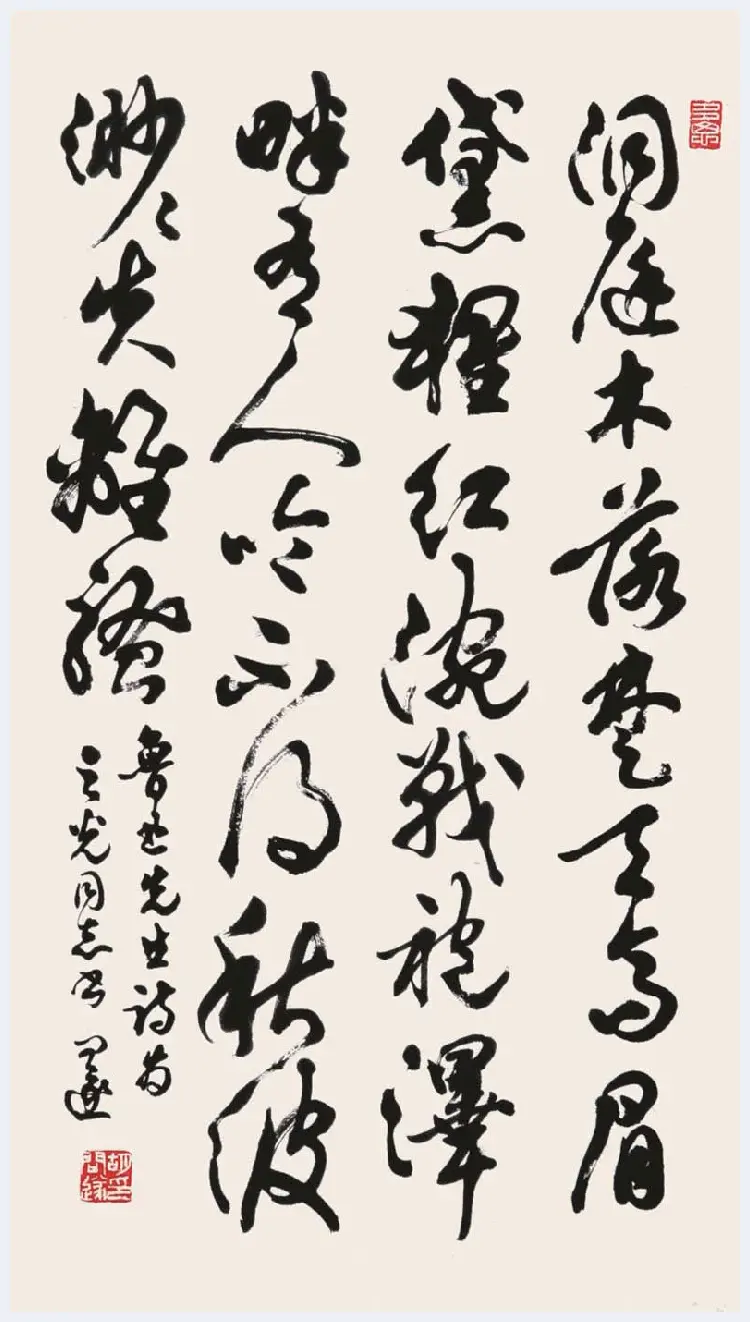 洞庭木落楚天高眉
黛猩红涴戰袍澤
畔有人吟不得秋波
渺〻失離騷
鲁迅先生诗为
之光同志书 问遂
胡問遂印